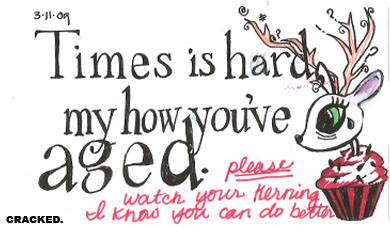 3·11·09
Times is hard,
my how you've
aged.
please
watch your kerning
I know you can do better
CRACKED.